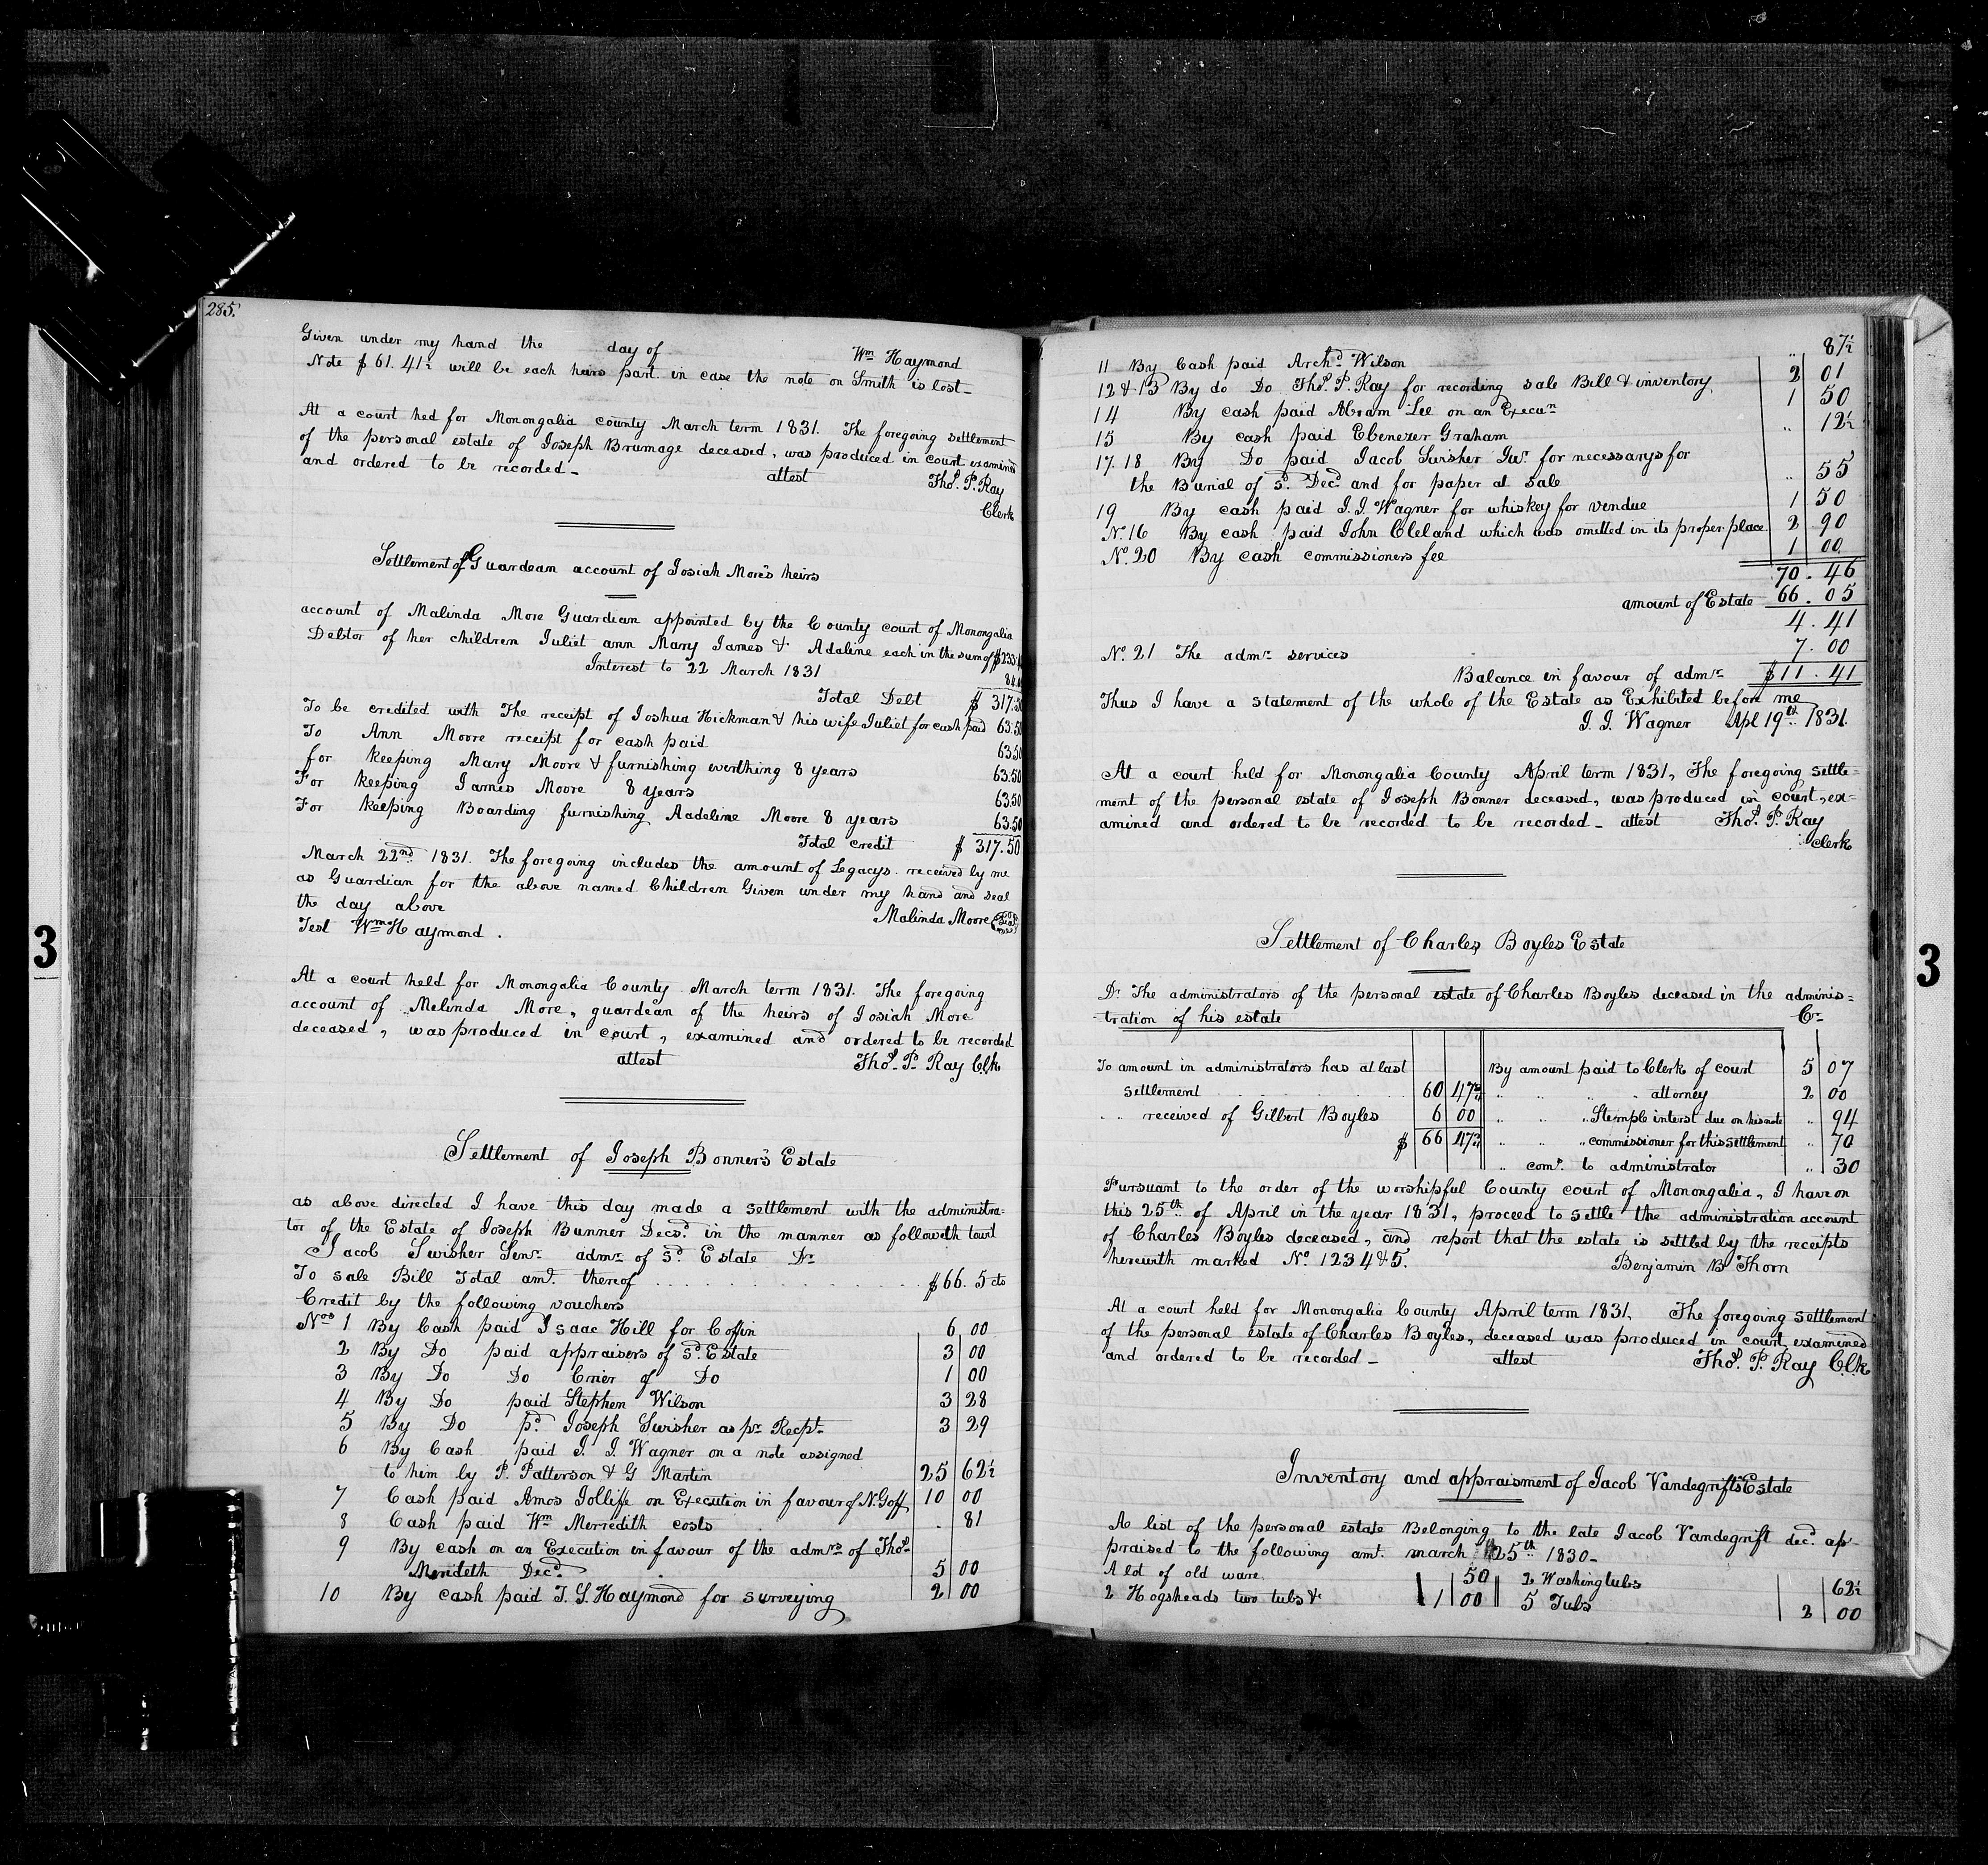 285.
Given under my hand the day of Wm Haymond
Note $ 61. 41½ will be each heirs part. in case the note on Smith is lost_
At a court hed for Monongalia county March term 1831. The foregoing settlement
of the personal estate of Joseph Brumage deceased, was produced in court examined
and ordered to be recorded_ attest Thos. P. Ray
Clerk
Settlement of Guardean account of Josiah More's heirs
account of Malinda More Guardian appointed by the County court of Monongalia
Debtor of her children Juliet ann Mary James & Adaline each in the sum of $233.
Interest to 22 March 1831 84.
Total Debt $ 317.50
To be credited with The receipt of Joshua Hickman & his wife Juliet for cash paid 63.50
To Ann Moore receipt for cash paid 63.50
for keeping Mary Moore & furnishing everthing 8 years 63.50
For keeping James Moore 8 years 63.50
For keeping Boarding furnishing Aadeline Moore 8 years 63.50
Total credit $ 317.50
March 22nd 1831. The foregoing includes the amount of Legacys received by me
as Guardian for the above named Children Given under my hand and seal
the day above Malinda Moore Seal
Test Wm Haymond.
At a court held for Monongalia County March term 1831. The foregoing
account of Melinda More, guardean of the heirs of Josiah More
deceased, was produced in court, examined and ordered to be recorded
attest Thos. P. Ray Clk
Settlement of Joseph Bonner's Estate
as above directed I have this day made a settlement with the administra-
tor of the Estate of Joseph Bunner Decd. in the manner as followeth towit
Jacob Swisher Senr. admr. of sd. Estate Dr
To sale Bill Total amt. thereof $66. 5 cts
Credit by the following vouchers
Nos 1 By Cash paid Isaac Hill for Coffin 6 00
2 By Do paid appraisers of sd. Estate 3 00
3 By Do Do Crier of Do 1 00
4 By Do paid Stephen Wilson 3 28
5 By Do pd. Joseph Swisher as pr Recpt- 3 29
6 By Cash paid J. J. Wagner on a note assigned
to him by P. Patterson & G Martin 25 62½
7 Cash paid Amos Jolliffe on Execution in favour of N. Goff 10 00
8 Cash paid Wm Merredith costs 81
9 By cash on an Execution in favour of the admrs of Thos-
Merideth Decd. 5 00
10 By cash paid T. S. Haymond for surveying 2 00
11 By Cash paid Archd. Wilson .. 87½
12 & 13 By do Do Thos. P. Ray for recording sale Bill & inventory 2 01
14 By cash paid Abram Lee on an Execun 1 50
15 By cash paid Ebenezer Graham .. 12½
17. 18 By Do paid Jacob Swisher Junr. for necessarys for
the Burial of sd. Decd and for paper at sale .. 55
19 By cash paid J. J. Wagner for whiskey for vendue 1 50
No. 16 By cash paid John Cleland which was omitted in its proper place 2 90
No. 20 By cash commissioners fee 1 00
70. 46
amount of Estate 66. 05
4. 41
No. 21 The admr. services 7. 00
Balance in favour of admr $11. 41
Thus I have a statement of the whole of the Estate as Exhibited before me
J. J. Wagner Apl 19th 1831.
At a court held for Monongalia County April term 1831, The foregoing settle-
ment of the personal estate of Joseph Bonner deceased, was produced in court, ex-
amined and ordered to be recorded to be recorded_ attest Thos. P. Ray
Clerk
Settlement of Charles Boyles Estate
Dr. The administrators of the personal estate of Charles Boyles deceased in the adminis-
tration of his estate Cr
To amount in administrators has at last By amount paid to Clerk of court 5 07
settlement 60 47¾ " " " attorney 2 00
" " received of Gilbert Boyles 6 00 " " " Stemple interst due on his note .. 94
$ 66 47¾ " " " commissioner for this settlement .. 70
" comr. to administrator .. 30
Pursuant to the order of the worshipful County court of Monongalia, I have on
this 25th of April in the year 1831, proceed to settle the administration account
of Charles Boyles deceased, and report that the estate is settled by the receipts
herewith marked No. 1 2 3 4 & 5. Benjamin B Thorn
At a court held for Monongalia County April term 1831, The foregoing settlement
of the personal estate of Charles Boyles, deceased was produced in court, examined
and ordered to be recorded_ attest Thos. P. Ray Clk
Inventory and appraisment of Jacob Vandegrift's Estate
A list of the personal estate Belonging to the late Jacob Vandegrift decd. ap-
praised to the following amt. march 25th 1830_
A lot of old ware 50 2 Washing tubs 62½
2 Hogsheads two tubs & 1 00 5 Tubs 2 00
3
3